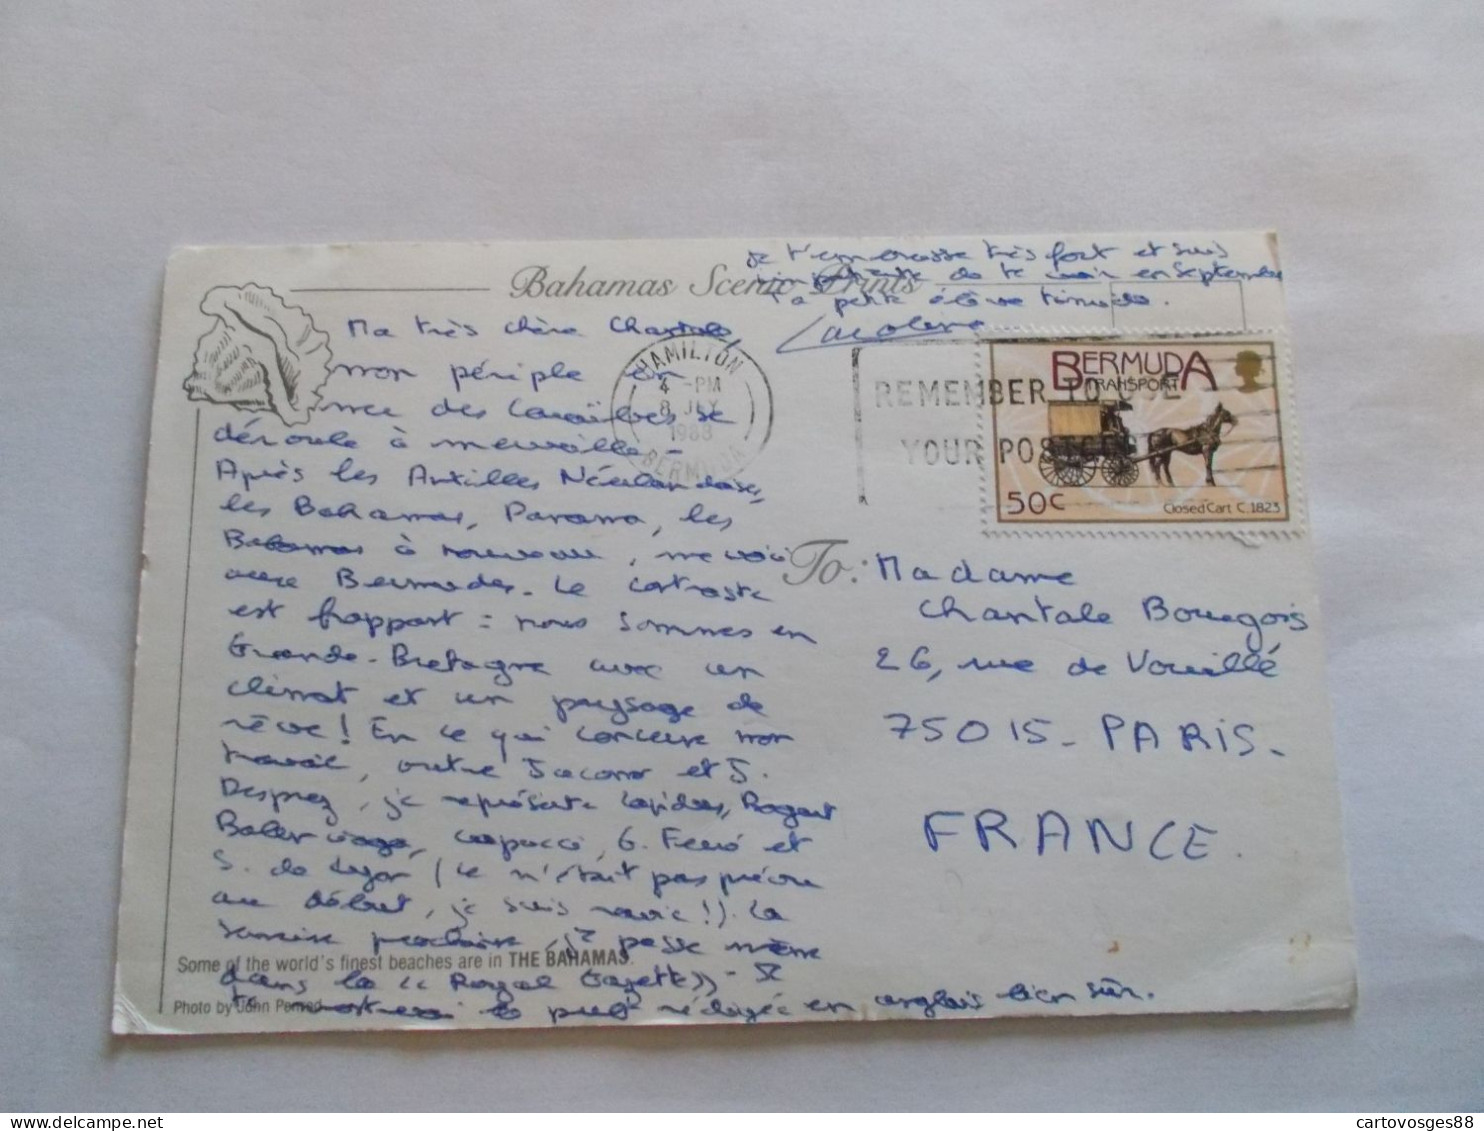 je t'embrasse très fort et suis
de te voir en septembre
Ta petite élève timide.
Bahamas Scenic Prints
Ma très chère Chantale,
mon périple en
mer des Caraïbes se
déroule à merveille -
Après les Antilles Néerlandaises,
les Bahamas, Panama, les
Bahamas à nouveau, me voici
aux Bermudes. Le contraste
est frappant : nous sommes en
Grande-Bretagne avec un
climat et un paysage de
rêve ! En ce qui concerne mon
travail, outre Jacomo et J.
Desprez, je représente Lapidus,
Balenciaga, Capucci, G. Ferré et
J. de (ce n'était pas prévu
au début, je suis ravie !). La
semaine prochaine, je passe même
dans la "Royal Gazette" -
la pub rédigée en anglais bien sûr.
HAMILTON
4 -PM
8 JLY
1988
BERMUDA
REMEMBER TO USE
YOUR POSTCODE
BERMUDA
TRANSPORT
50c
Closed Cart C.1823
To: Madame
Chantale Bourgois
26, rue de Vouillé
75015 - PARIS -
FRANCE.
Some of the world's finest beaches are in THE BAHAMAS.
Photo by John
cartovosges88